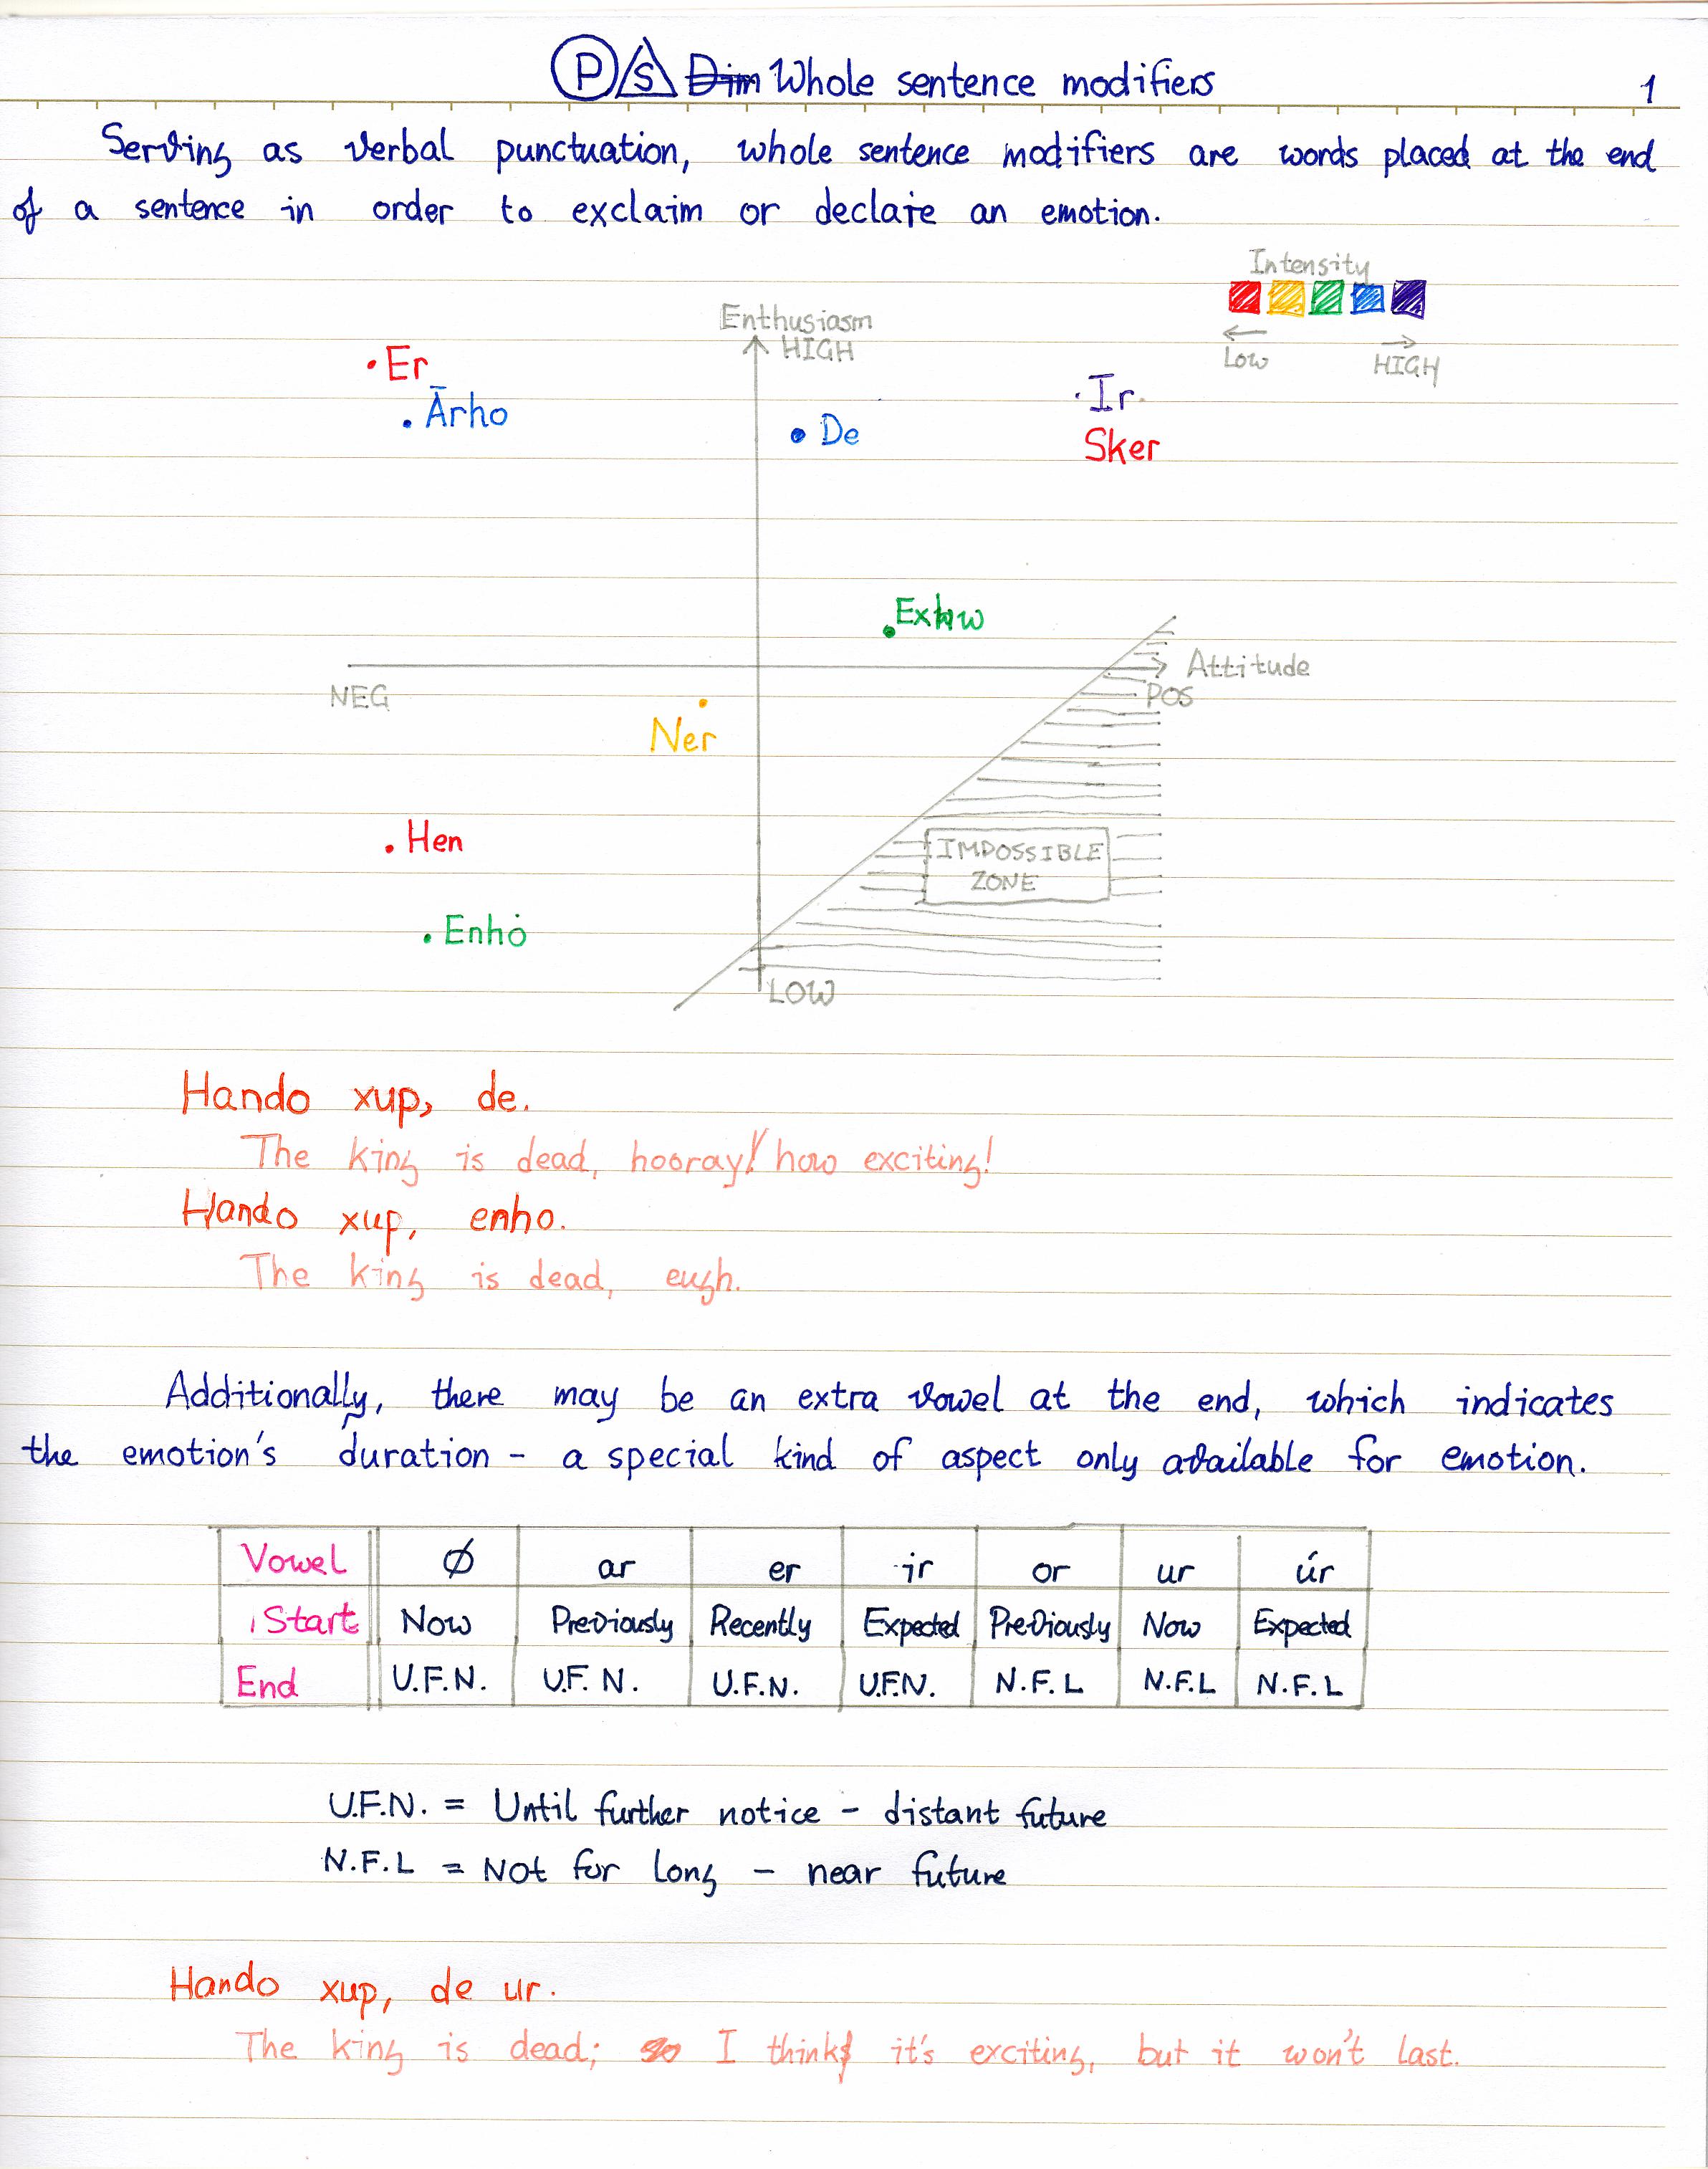 P S Dim Whole sentence modifiers 1
Serving as verbal punctuation, whole sentence modifiers are words placed at the end
of a sentence in order to exclaim or declare an emotion.
Intensity
Low HIGH
Enthusiasm
HIGH
Er
Ārho
De
Ir
Sker
NEG
Attitude
POS
Ner
Hen
IMPOSSIBLE
ZONE
Enhȯ
LOW
Hando xup, de.
The king is dead, hooray! how exciting!
Hando xup, enho.
The king is dead, eugh.
Additionally, there may be an extra vowel at the end, which indicates
the emotion's duration - a special kind of aspect only available for emotion.
Vowel Ø ar er ir or ur úr
Start Now Previously Recently Expected Previously Now Expected
End U.F.N. U.F.N. U.F.N. U.F.N. N.F.L N.F.L N.F.L
U.F.N. = Until further notice - distant future
N.F.L = Not for long - near future
Hando xup, de ur.
The king is dead; so I think it's exciting, but it won't last.